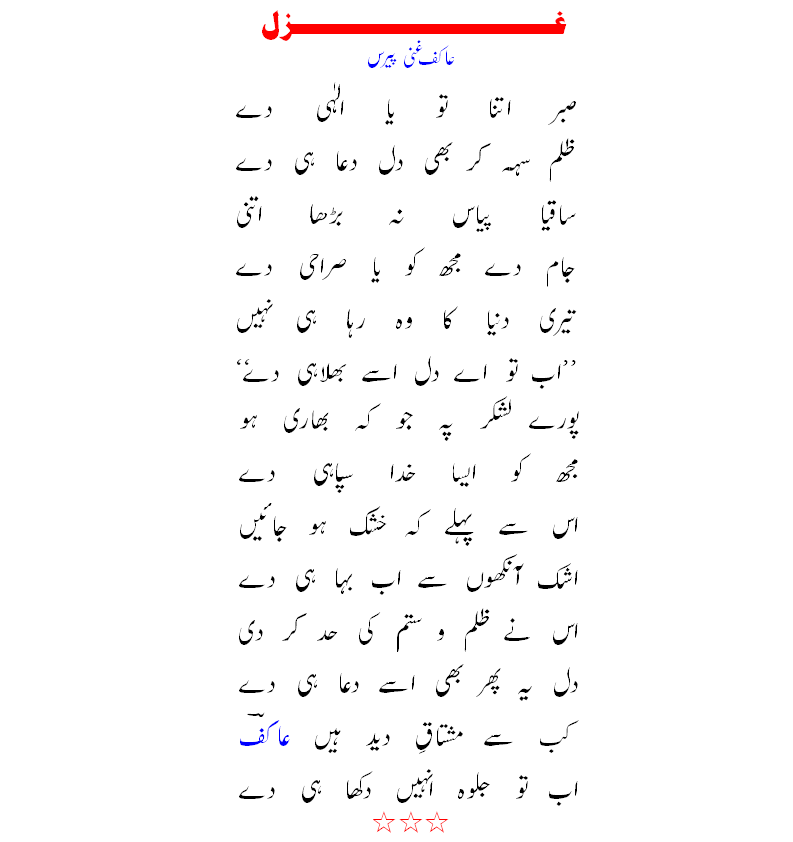 غزل
عاکف غنی پیرس
صبر اتنا تو یا الٰہی دے
ظلم سہہ کر بھی دل دعا ہی دے
ساقیا پیاس نہ بڑھا اتنی
جام دے مجھ کو یا صراحی دے
تیری دنیا کا وہ رہا ہی نہیں
’’اب تو اے دل اسے بھلاہی دے‘‘
پورے لشکر پہ جو کہ بھاری ہو
مجھ کو ایسا خدا سپاہی دے
اس سے پہلے کہ خشک ہو جائیں
اشک آنکھوں سے اب بہا ہی دے
اس نے ظلم و ستم کی حد کر دی
دل یہ پھر بھی اسے دعا ہی دے
کب سے مشتاقِ دید ہیں عاکفؔ
اب تو جلوہ انہیں دکھا ہی دے
☆☆☆